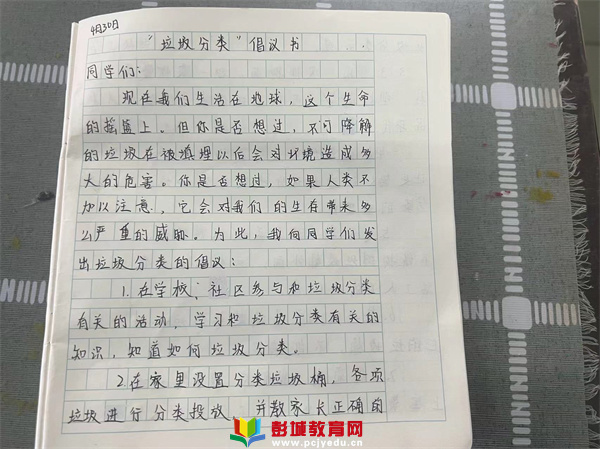 4月30日
"垃圾分类"倡议书
同学们：
现在我们生活在地球，这个生命
的摇篮上。但你是否想过，不可降解
的垃圾在被填埋以后会对环境造成多
大的危害。你是否想过，如果人类不
加以注意，它会对我们的生存带来多
么严重的威胁。为此，我向同学们发
出垃圾分类的倡议：
1.在学校、社区参与和垃圾分类
有关的活动，学习和垃圾分类有关的
知识，知道如何垃圾分类。
2.在家里设置分类垃圾桶，各项
垃圾进行分类投放，并教家长正确的
彭城教育网
www.pcjyedu.cn